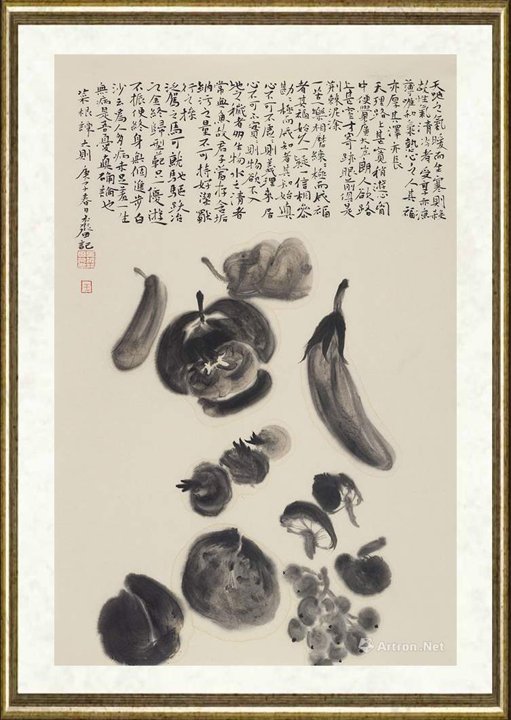 天地之氣暖而生寒則殺
故性氣清冷者受享亦涼
薄唯和氣熱心之人其福
亦厚其澤亦長
天理路上甚寬稍游心胸
中便覺廣大宏朗人欲路
上甚窄才寄跡眼前俱是
荊棘泥塗
一苦一樂相磨練練極而成福
者其福始久一疑一信相參
勘勘極而成知者其知始真
心不可不虛虛則義理來居
心不可不實實則物欲不入
地之穢者多生物水之清者
常無魚故君子當存含垢
納污之量不可持好潔獨
行之操
泛駕之馬可就驅馳躍冶
之金終歸型範只一優游
不振便終身無個進步白
沙云為人多病未足羞一生
無病是吾憂真確論也
菜根譚六則庚子春日記
Artron.Net